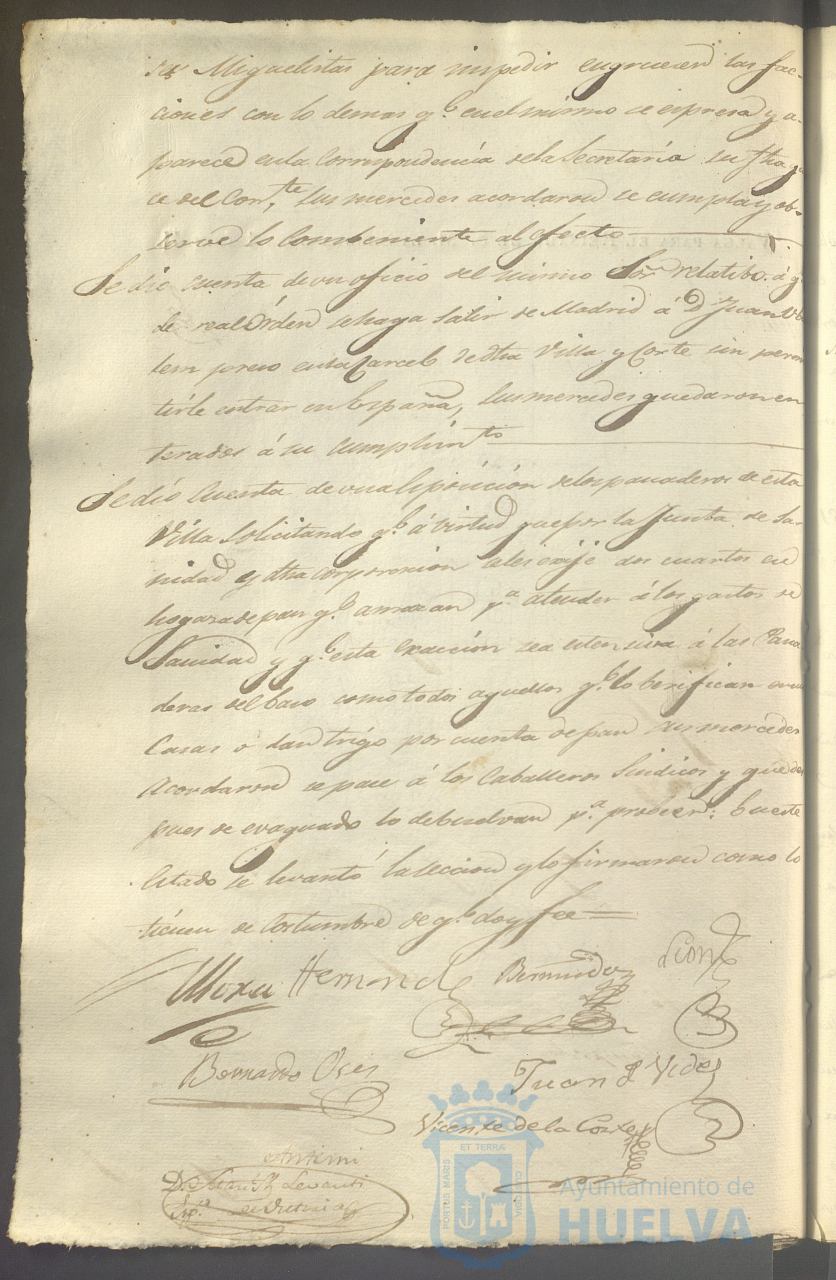 Miguelistas para impedir engruesen las fac-
ciones con lo demas q.e en el mismo se espresa y a-
parece en la Correspondencia de la Secretaría su fha
ce del Corr.te Sus mercedes acordaron se cumpla y ob-
serve lo combeniente al efecto
Se dió cuenta de un oficio del mismo Sor relatibo á q.e
de real Órden se haga salir de Madrid á D. Juan
preso en la Carcel de dha Villa y Corte sin permi
tirle entrar en España, Sus mercedes quedaron en
terados á su cumplim.to
Se dió cuenta de una Esposicion de los panaderos de esta
Villa solicitando q.e á virtud que por la Junta de Sa-
nidad y dha corporacion se les exije dos cuartos en
hogaza de pan q.e amasan p.a atender á los gastos de
Sanidad y q.e esta exaccion sea estensiva á las Pana
deras del baso como todos aquellos q.e lo berifican en sus
Casas ó dan trigo por cuenta de pan sus mercedes
Acordaron se pase á los Caballeros Sindicos y que des
pues de evaguado lo debuelvan p.a probeer: En este
Estado se levantó la seccion y lo firmaron como lo
tienen de Costumbre de q.e doy fee
Mora Hernand Bermudez Leon
Bernardo Oses Juan Vides
Vicente de la Corte
Ante mi
ET TERRA
PORTUS MARIS
CUSTODIA
Ayuntamiento de
HUELVA